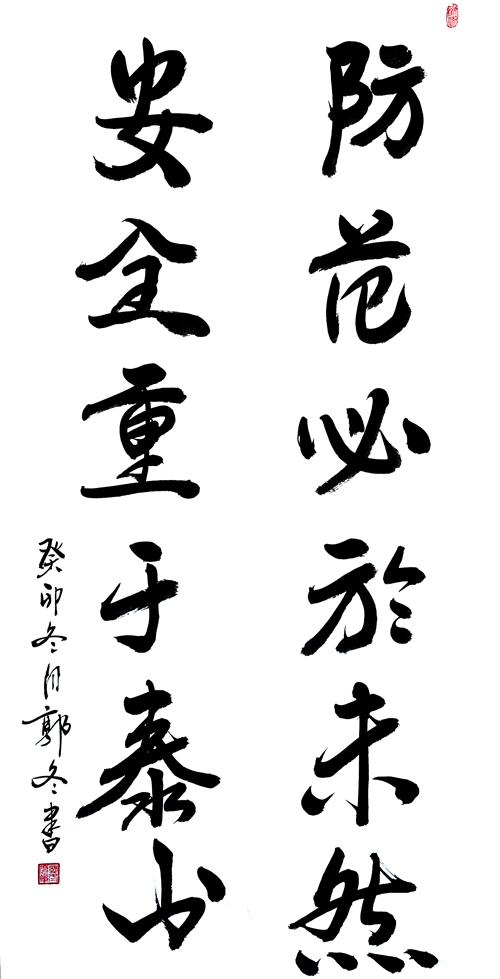 防范必於未然
安全重于泰山
癸卯冬月郭冬書